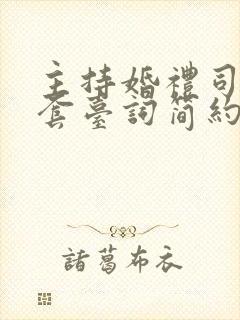 主持婚禮司
套臺詞简約
諸葛布衣